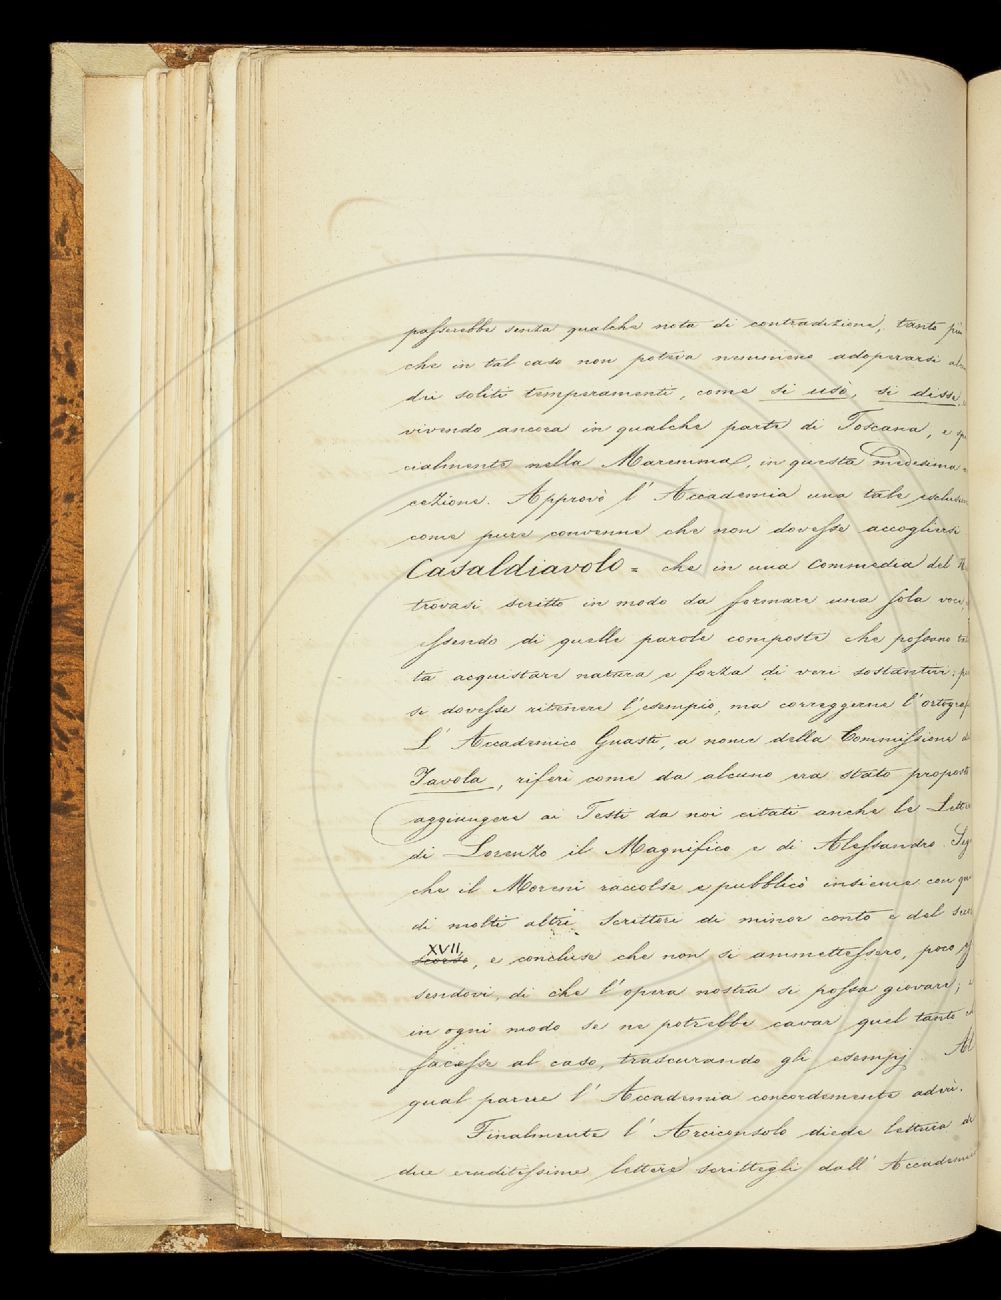 passerebbe senza qualche nota di contradizione, tanto più
che in tal caso non poteva nemmeno adoperarsi
dei soliti temperamenti, come si usò, si disse,
vivendo ancora in qualche parte di Toscana, e spe
cialmente nella Maremma, in questa medesima
cezione. Approvò l' Accademia una tale esclusione
come pure convenne che non dovesse accogliersi
Casaldiavolo = che in una Commedia del
trovasi scritto in modo da formare una sola voce,
essendo di quelle parole composte che possano
ta acquistare natura e forza di veri sostantivi:
se dovesse ritenere l'esempio, ma correggerne l'ortograf
L' Accademico Guasti, a nome della Commissione
Tavola, riferì come da alcuno era stato proposto
aggiungere ai Testi da noi citati anche le Lettere
di Lorenzo il Magnifico e di Alessandro Seg
che il Moreni raccolse e pubblicò insieme con que
di molti altri Scrittori di minor conto e del
XVII
scorso, e concluse che non si ammettessero, poco
sendovi, di che l'opera nostra si possa giovare;
in ogni modo se ne potrebbe cavar quel tanto
facesse al caso, trascurando gli esempj. Al
qual parere l' Accademia concordemente aderì.
Finalmente l' Arciconsolo diede lettura di
due eruditissime lettere scrittegli dall' Accademico